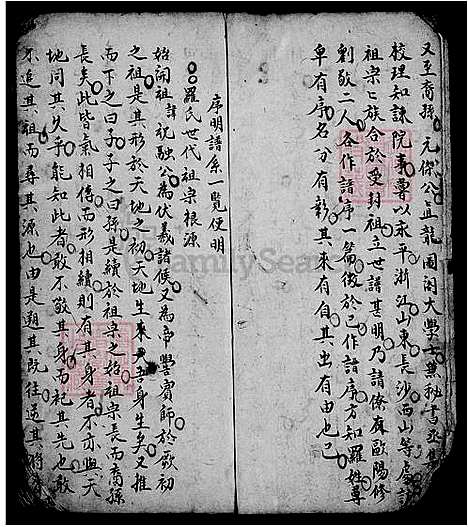 又至裔孫元傑公直龍圖閣大學士兼秘書丞集
校理知諫院事尊以永平浙江山東長沙西山等處
祖宗與族合於受封祖立世譜甚明乃請僚庥歐陽修
劉敬二人各作譜序一篇後於己作譜序方知羅姓尊
卑有序名分有彰其來有自其出有由也已
序明譜系一覽便明
羅氏世代祖宗根源
始開祖諱祝融公為伏羲諸侯又為帝嚳賓師於歌初
之祖是其形於天地之初天地生來只吾身生矣又推
而下之曰子子之曰孫是續於祖宗之始祖宗長而裔孫
長矣此皆氣相傳而形相續則有其身者不亦與天
地同其久乎能知此者敢不敬其身而祀其先也敢
不追其祖而尋其源也由是遡其既往迄其將
FamilySearch